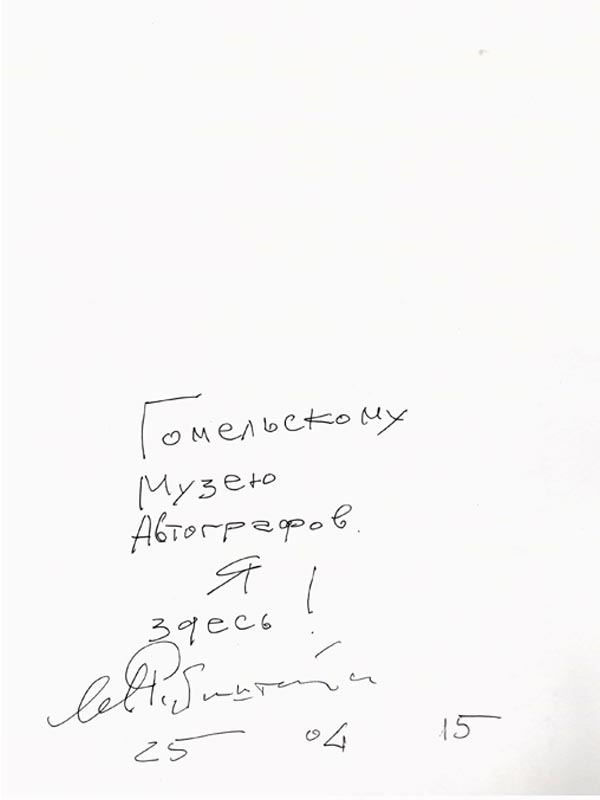 Гомельскому
Музею
Автографов.
Я
здесь!
25 04 15